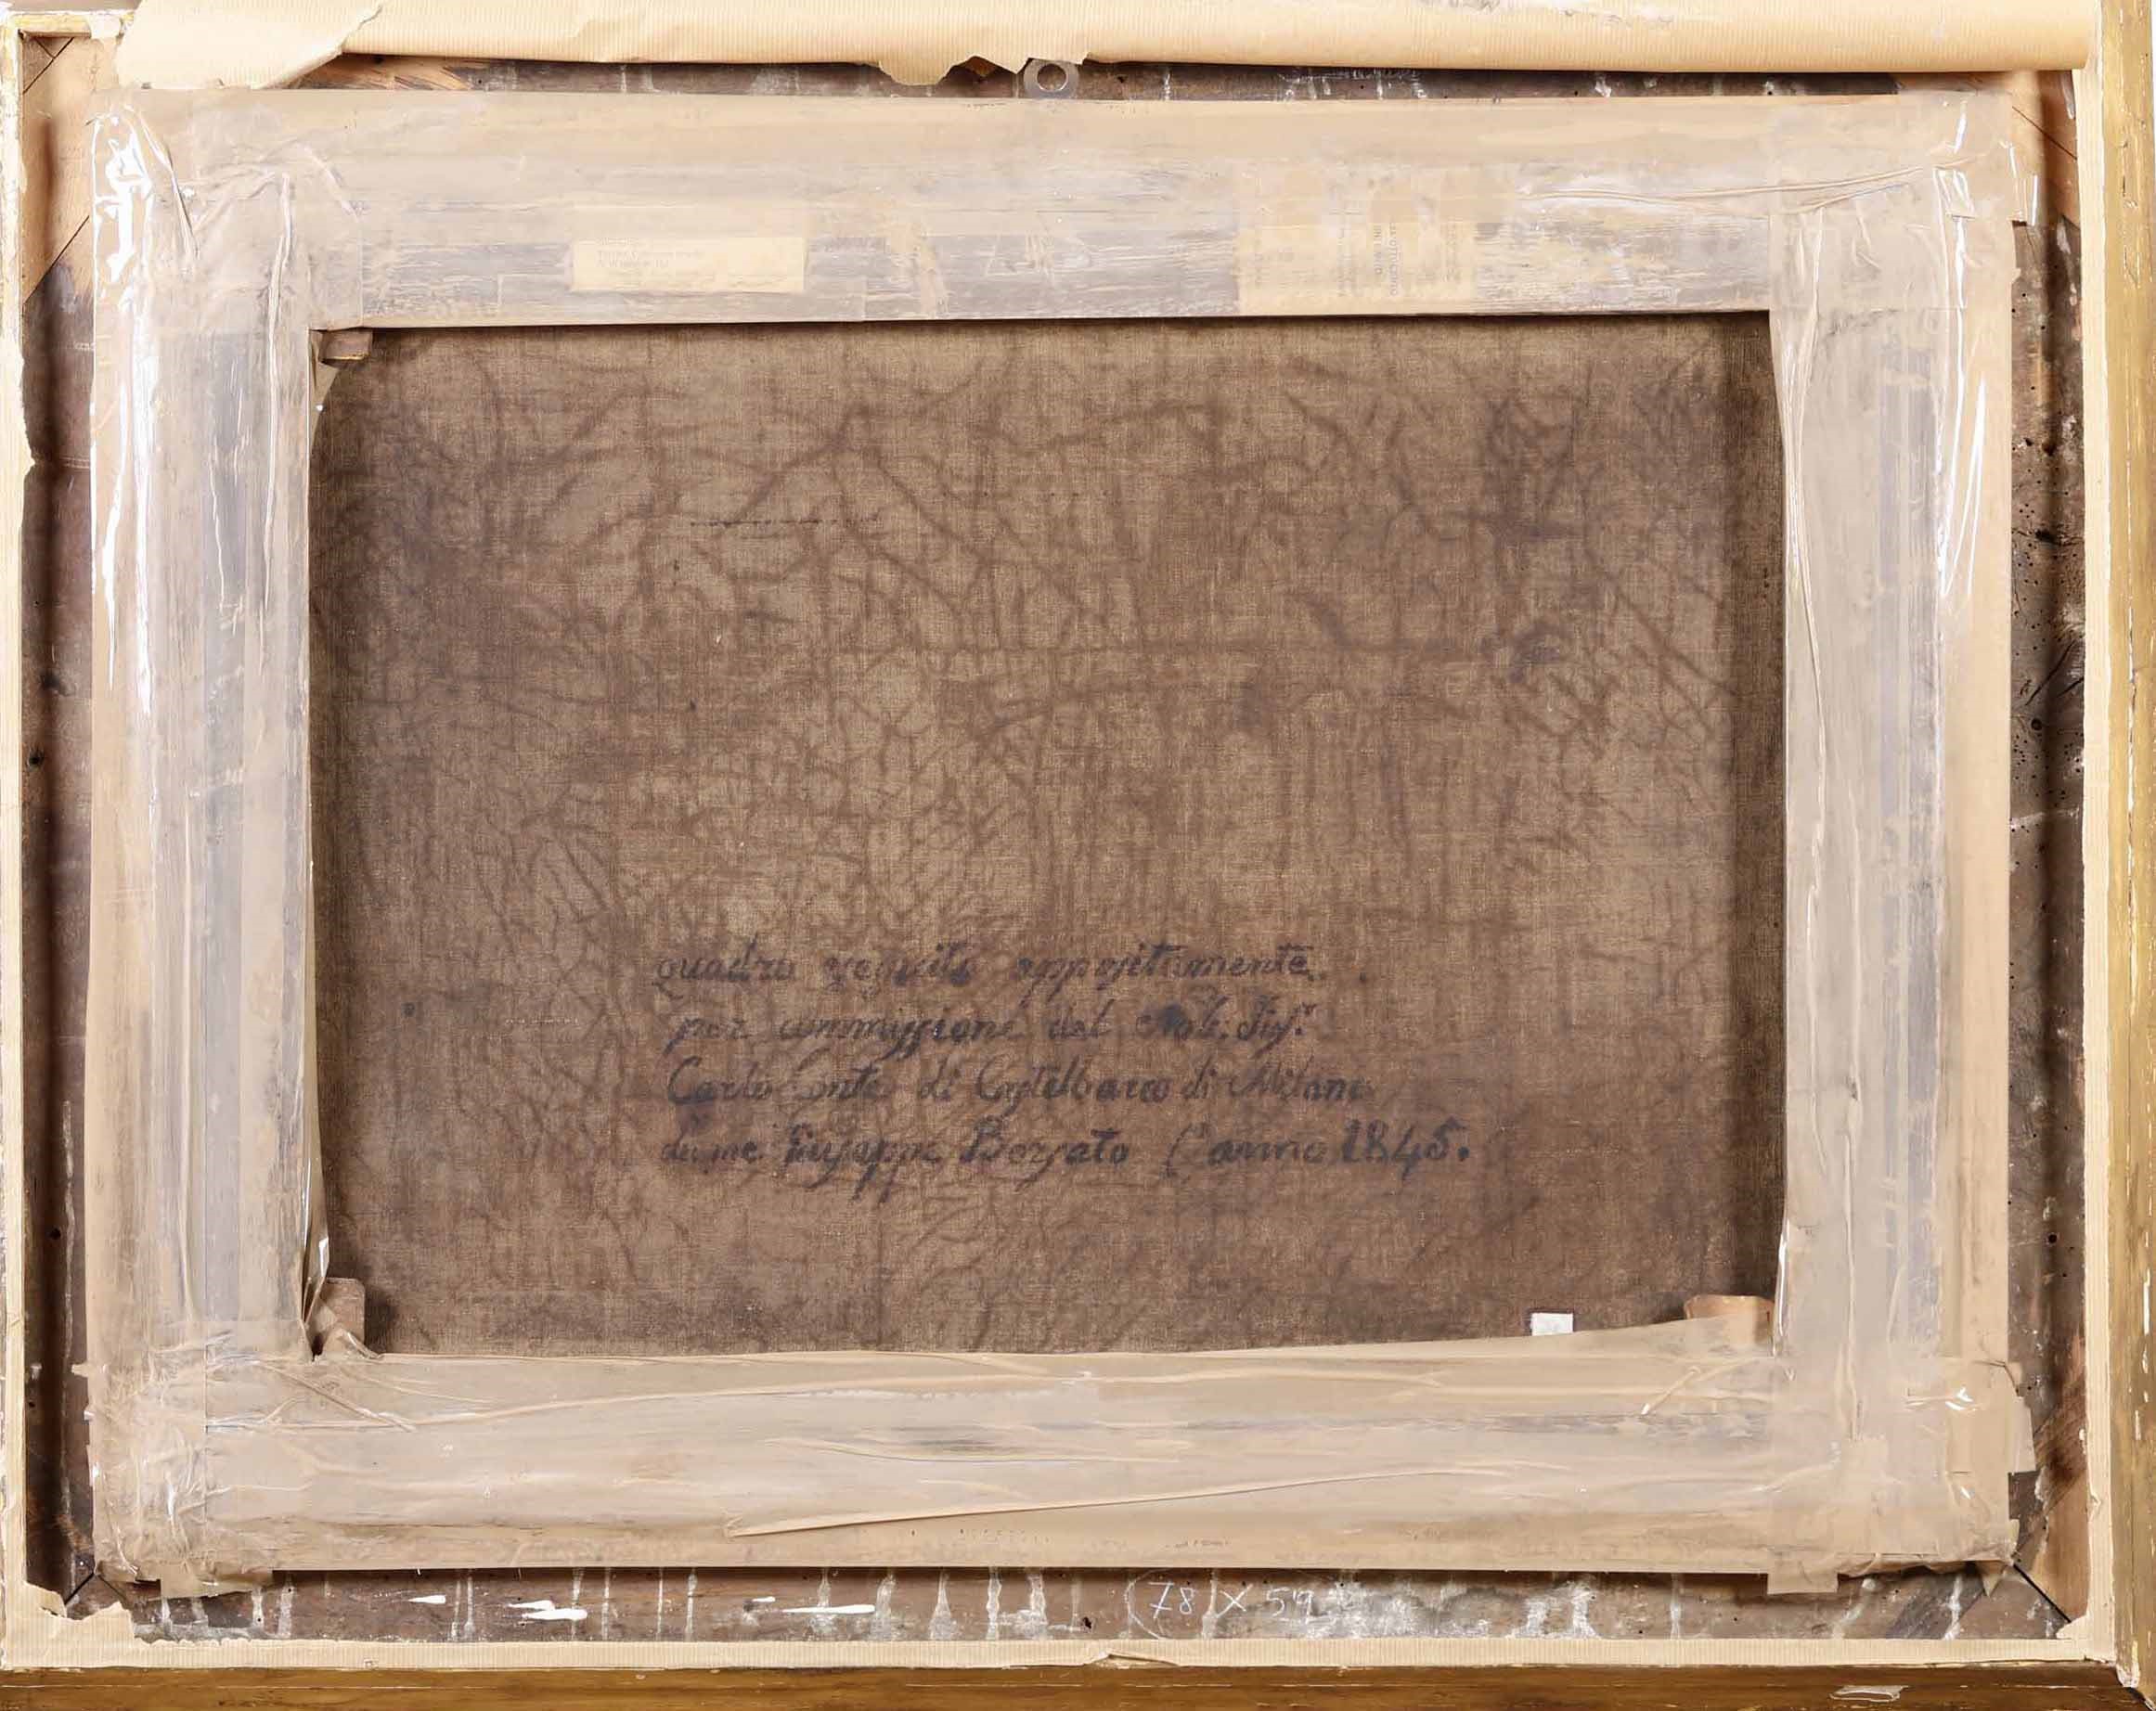 quadro eseguito appositamente
per commissione del Nob. Sigr.
Carlo Conte di Castelbarco di Milano
da me Giuseppe Borsato l'anno 1845.
78 X 59